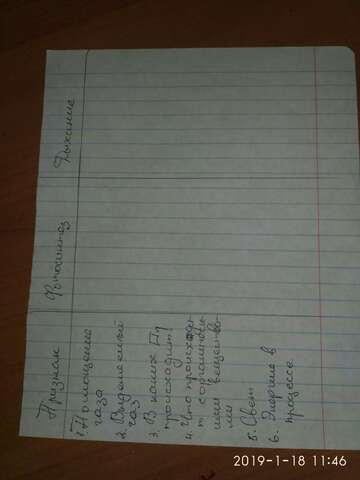 Признак Фотосинтез Дыхание
1. Поглощение
газа
2. Выделяемый
газ
3. В каких
происходит?
4. Что происходит
с органически
ми вещества
ми
5. Свет
6. Энергия в
процессе
2019-1-18 11:46